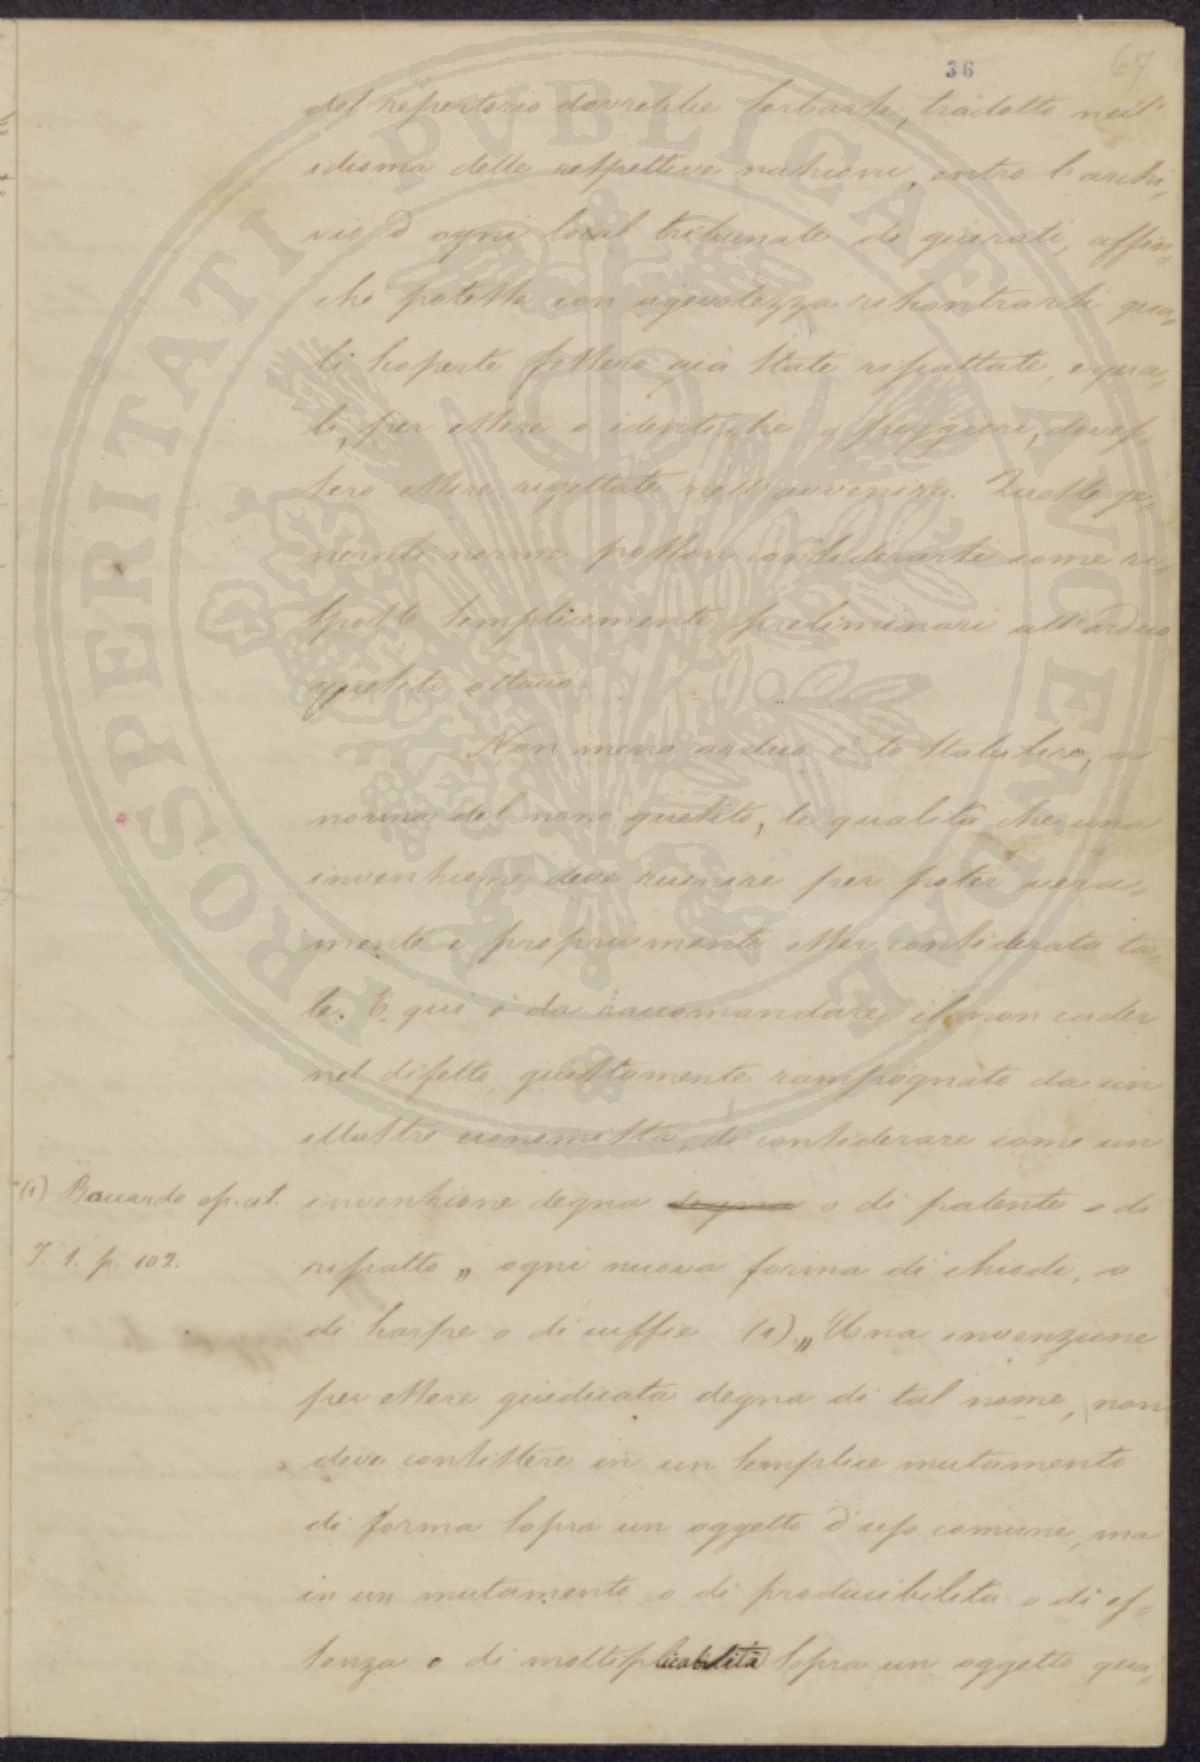 36
67
del repertorio dovrebbe serbarsi, tradotto nell'
idioma delle respettive nazioni, entro l'archi,,
vio d'ogni local tribunale di giurati, affin,,
che potesse con agevolezza riscontrarsi qua,,
li scoperte fossero già state rispattate, e qua,,
li, per essere o identiche o peggiori, doves,,
sero essere rigettate nell'avvenire. Queste ge,,
nerali norme posson considerarsi come ri,,
sposte semplicemente preliminari all'arduo
quesito ottavo.
Non meno arduo è lo stabilire, a
norma del nono quesito, le qualità che una
invenzione deve riunire per poter vera,,
mente e propriamente esser considerata ta,,
le. E qui è da raccomandare il non cader
nel difetto, giustamente rampognato da un
illustre economista, di considerare come un
invenzione degna degna o di patente o di
rispatto „ ogni nuova forma di chiodi, o
di scarpe o di cuffie (1)„ Una invenzione
per essere giudicata degna di tal nome, non
deve consistere in un semplice mutamento
di forma sopra un oggetto d'uso comune, ma
in un mutamento o di producibilità o di es,,
senza o di moltiplicabilità sopra un oggetto qua,,
(1) Boccardo op. cit.
T. 1. p. 102.
PROSPERITATI PVBLICAE AVGENDAE